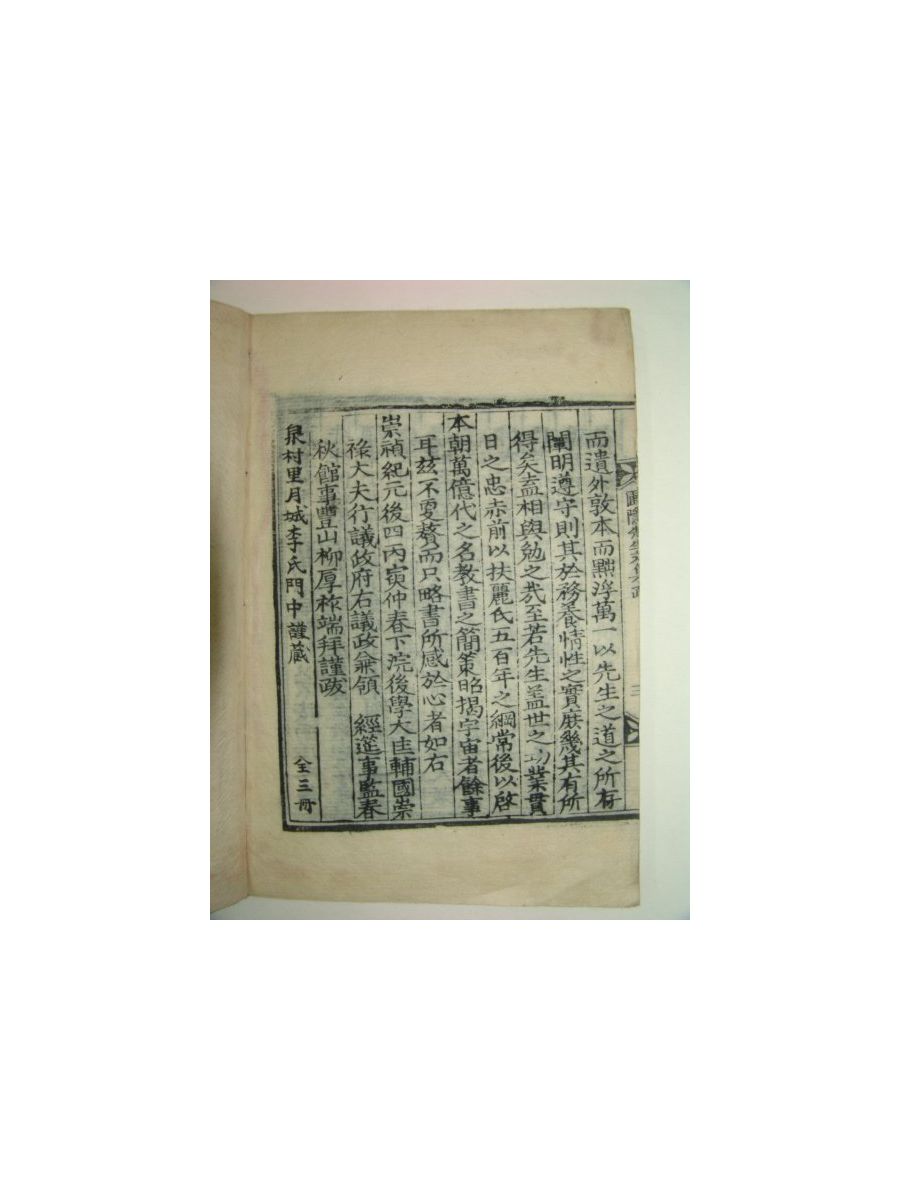 圃隱先生文集跋
三
而遺外敦本而黜浮萬一以先生之道之所存
闡明遵守則其於務養情性之實庶幾其有所
得矣盍相與勉之哉至若先生蓋世之功業貫
日之忠赤前以扶麗氏五百年之綱常後以啓
本朝萬億代之名教書之簡策昭揭宇宙者餘事
耳玆不更贅而只略書所感於心者如右
崇禎紀元後四丙寅仲春下浣後學大匡輔國崇
祿大夫行議政府右議政兼領 經筵事監春
秋館事豐山柳厚祚端拜謹跋
良村里月城李氏門中謹藏 全三冊